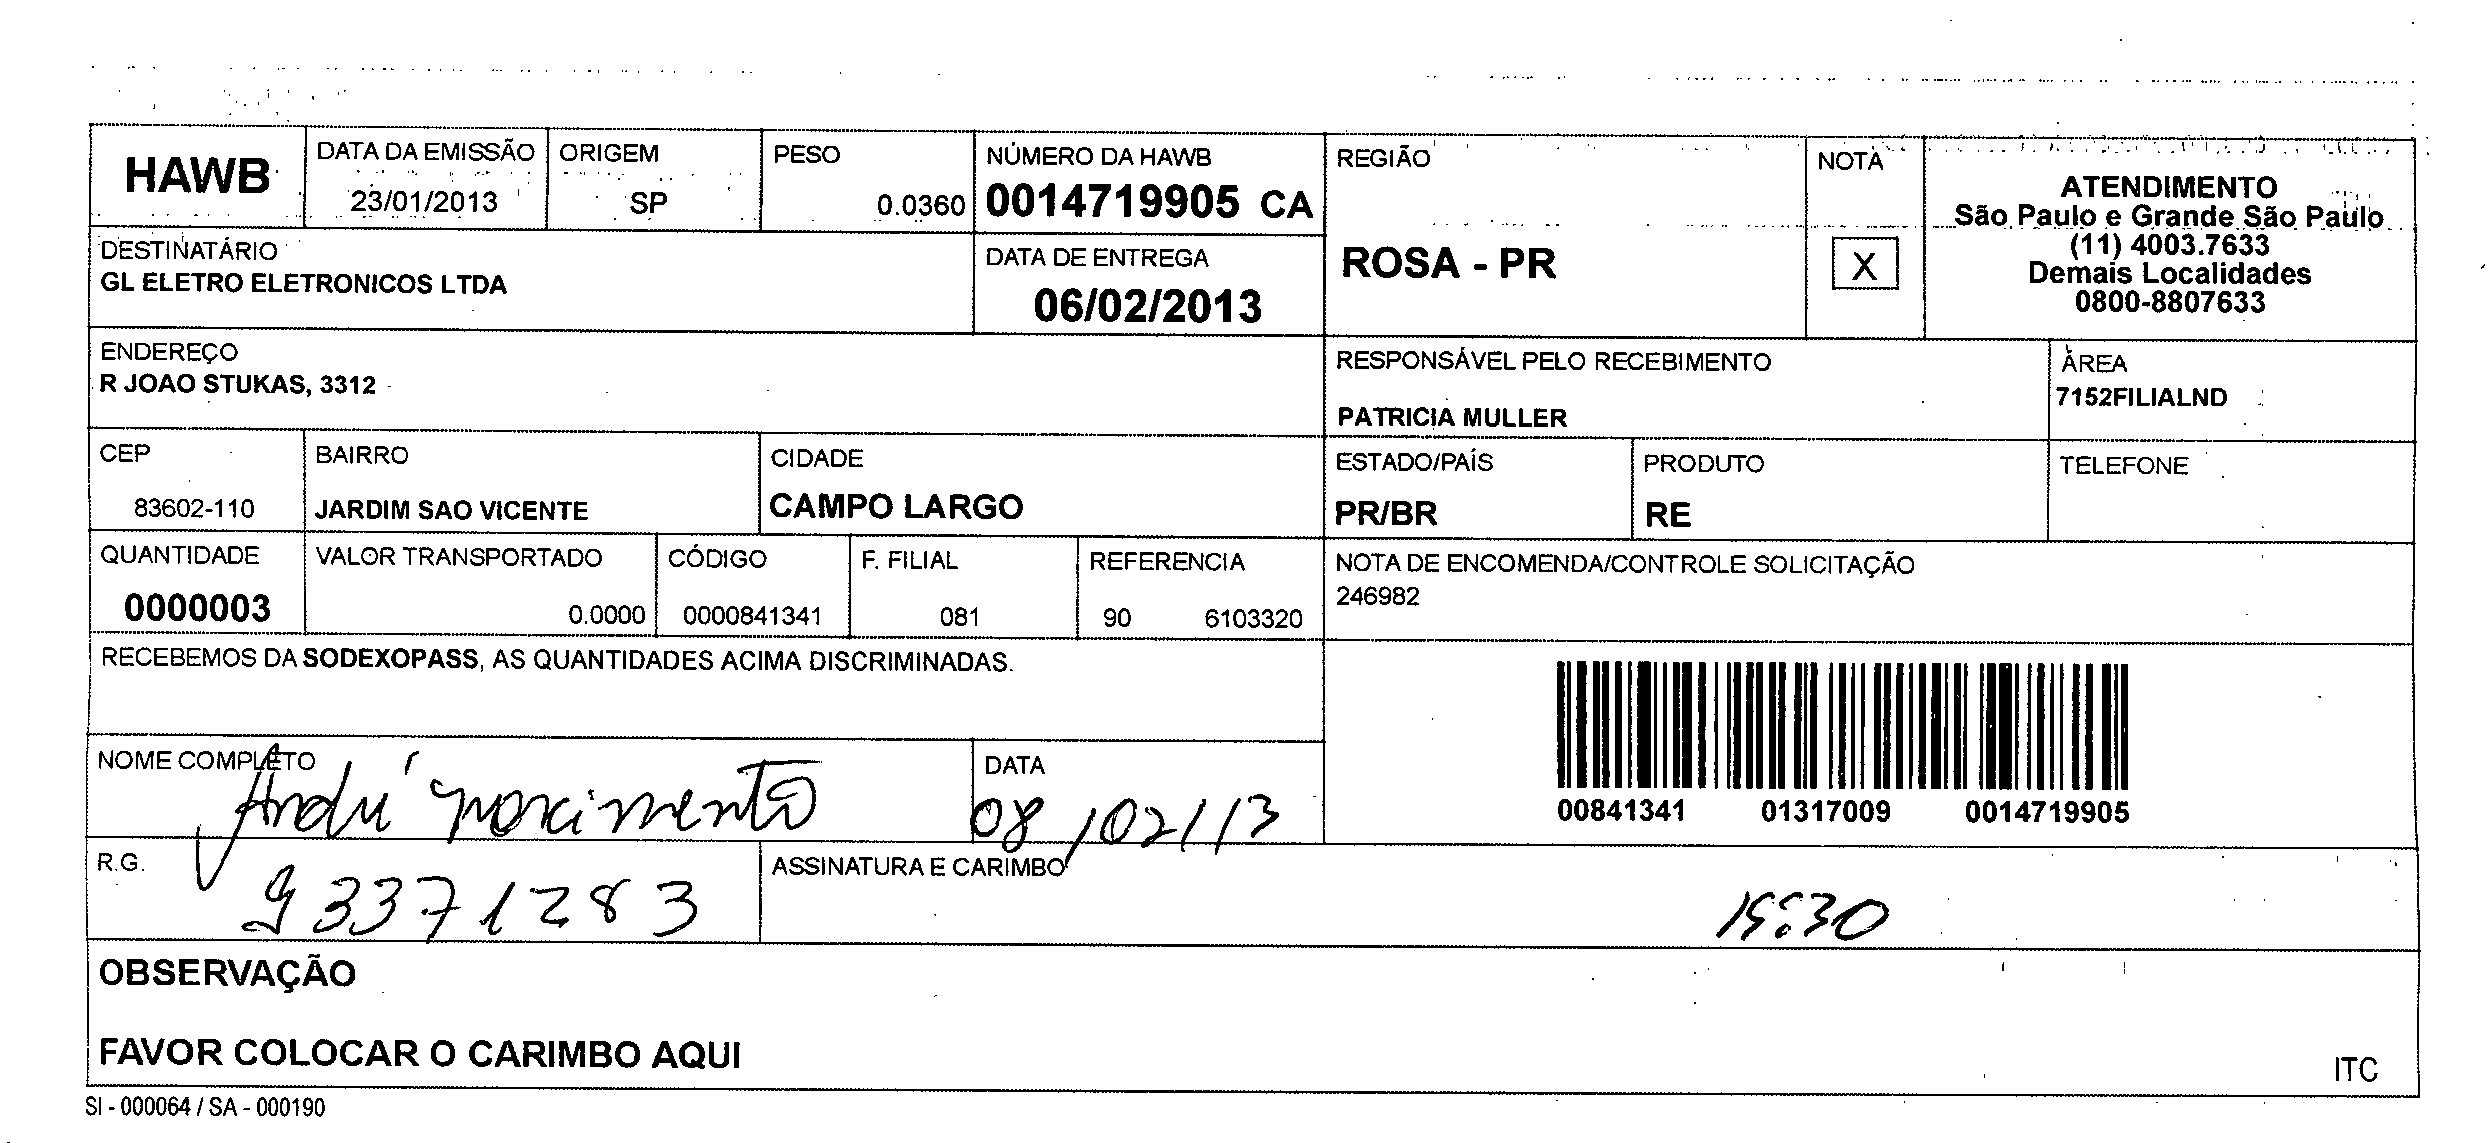 HAWB
DATA DA EMISSÃO
23/01/2013
ORIGEM
SP
PESO
0.0360
NÚMERO DA HAWB
0014719905 CA
REGIÃO
ROSA - PR
NOTA
X
ATENDIMENTO
São Paulo e Grande São Paulo
(11) 4003.7633
Demais Localidades
0800-8807633
DESTINATÁRIO
GL ELETRO ELETRONICOS LTDA
DATA DE ENTREGA
06/02/2013
ENDEREÇO
R JOAO STUKAS, 3312
RESPONSÁVEL PELO RECEBIMENTO
PATRICIA MULLER
ÁREA
7152FILIALND
CEP
83602-110
BAIRRO
JARDIM SAO VICENTE
CIDADE
CAMPO LARGO
ESTADO/PAÍS
PR/BR
PRODUTO
RE
TELEFONE
QUANTIDADE
0000003
VALOR TRANSPORTADO
0.0000
CÓDIGO
0000841341
F. FILIAL
081
REFERENCIA
90 6103320
NOTA DE ENCOMENDA/CONTROLE SOLICITAÇÃO
246982
RECEBEMOS DA SODEXOPASS, AS QUANTIDADES ACIMA DISCRIMINADAS.
00841341 01317009 0014719905
NOME COMPLETO
André nascimento
DATA
08/02/13
R.G.
93371283
ASSINATURA E CARIMBO
15:30
OBSERVAÇÃO
FAVOR COLOCAR O CARIMBO AQUI
ITC
SI - 000064 / SA - 000190